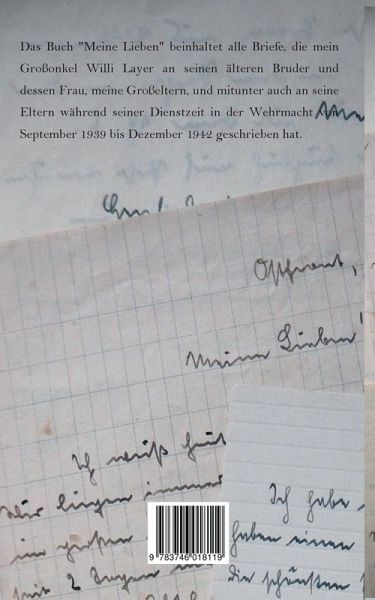 Das Buch "Meine Lieben" beinhaltet alle Briefe, die mein
Großonkel Willi Layer an seinen älteren Bruder und
dessen Frau, meine Großeltern, und mitunter auch an seine
Eltern während seiner Dienstzeit in der Wehrmacht von
September 1939 bis Dezember 1942 geschrieben hat.
Ostfront,
Meine Lieben!
Ich weiß
wir liegen immer
im großen
mit 2
Ich habe
haben einen
die schönsten
9 783746 018119